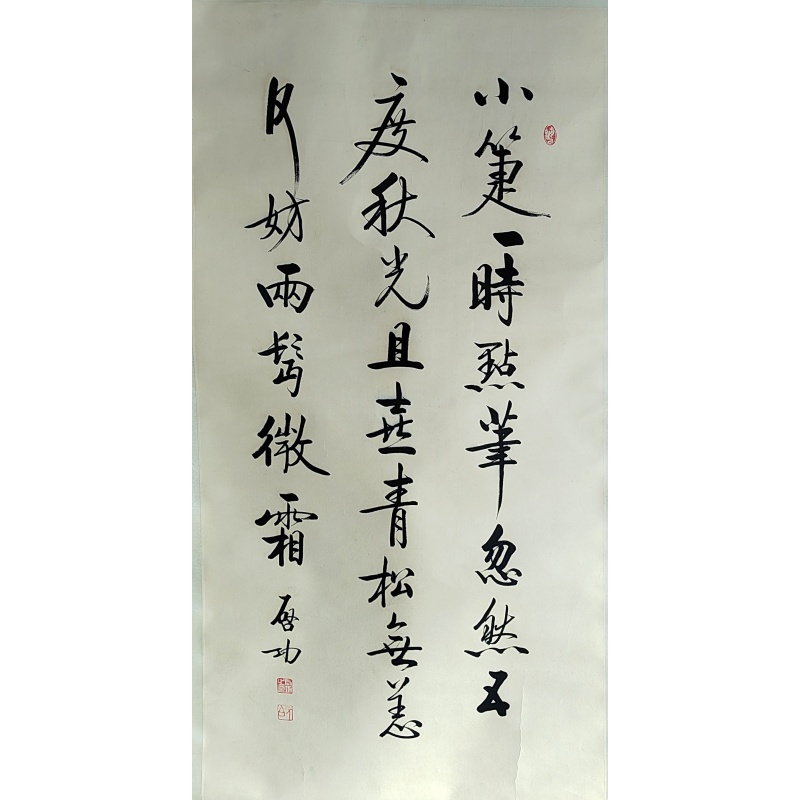 小箑一時點筆忽然五
度秋光且喜青松無恙
何妨兩鬢微霜
启功